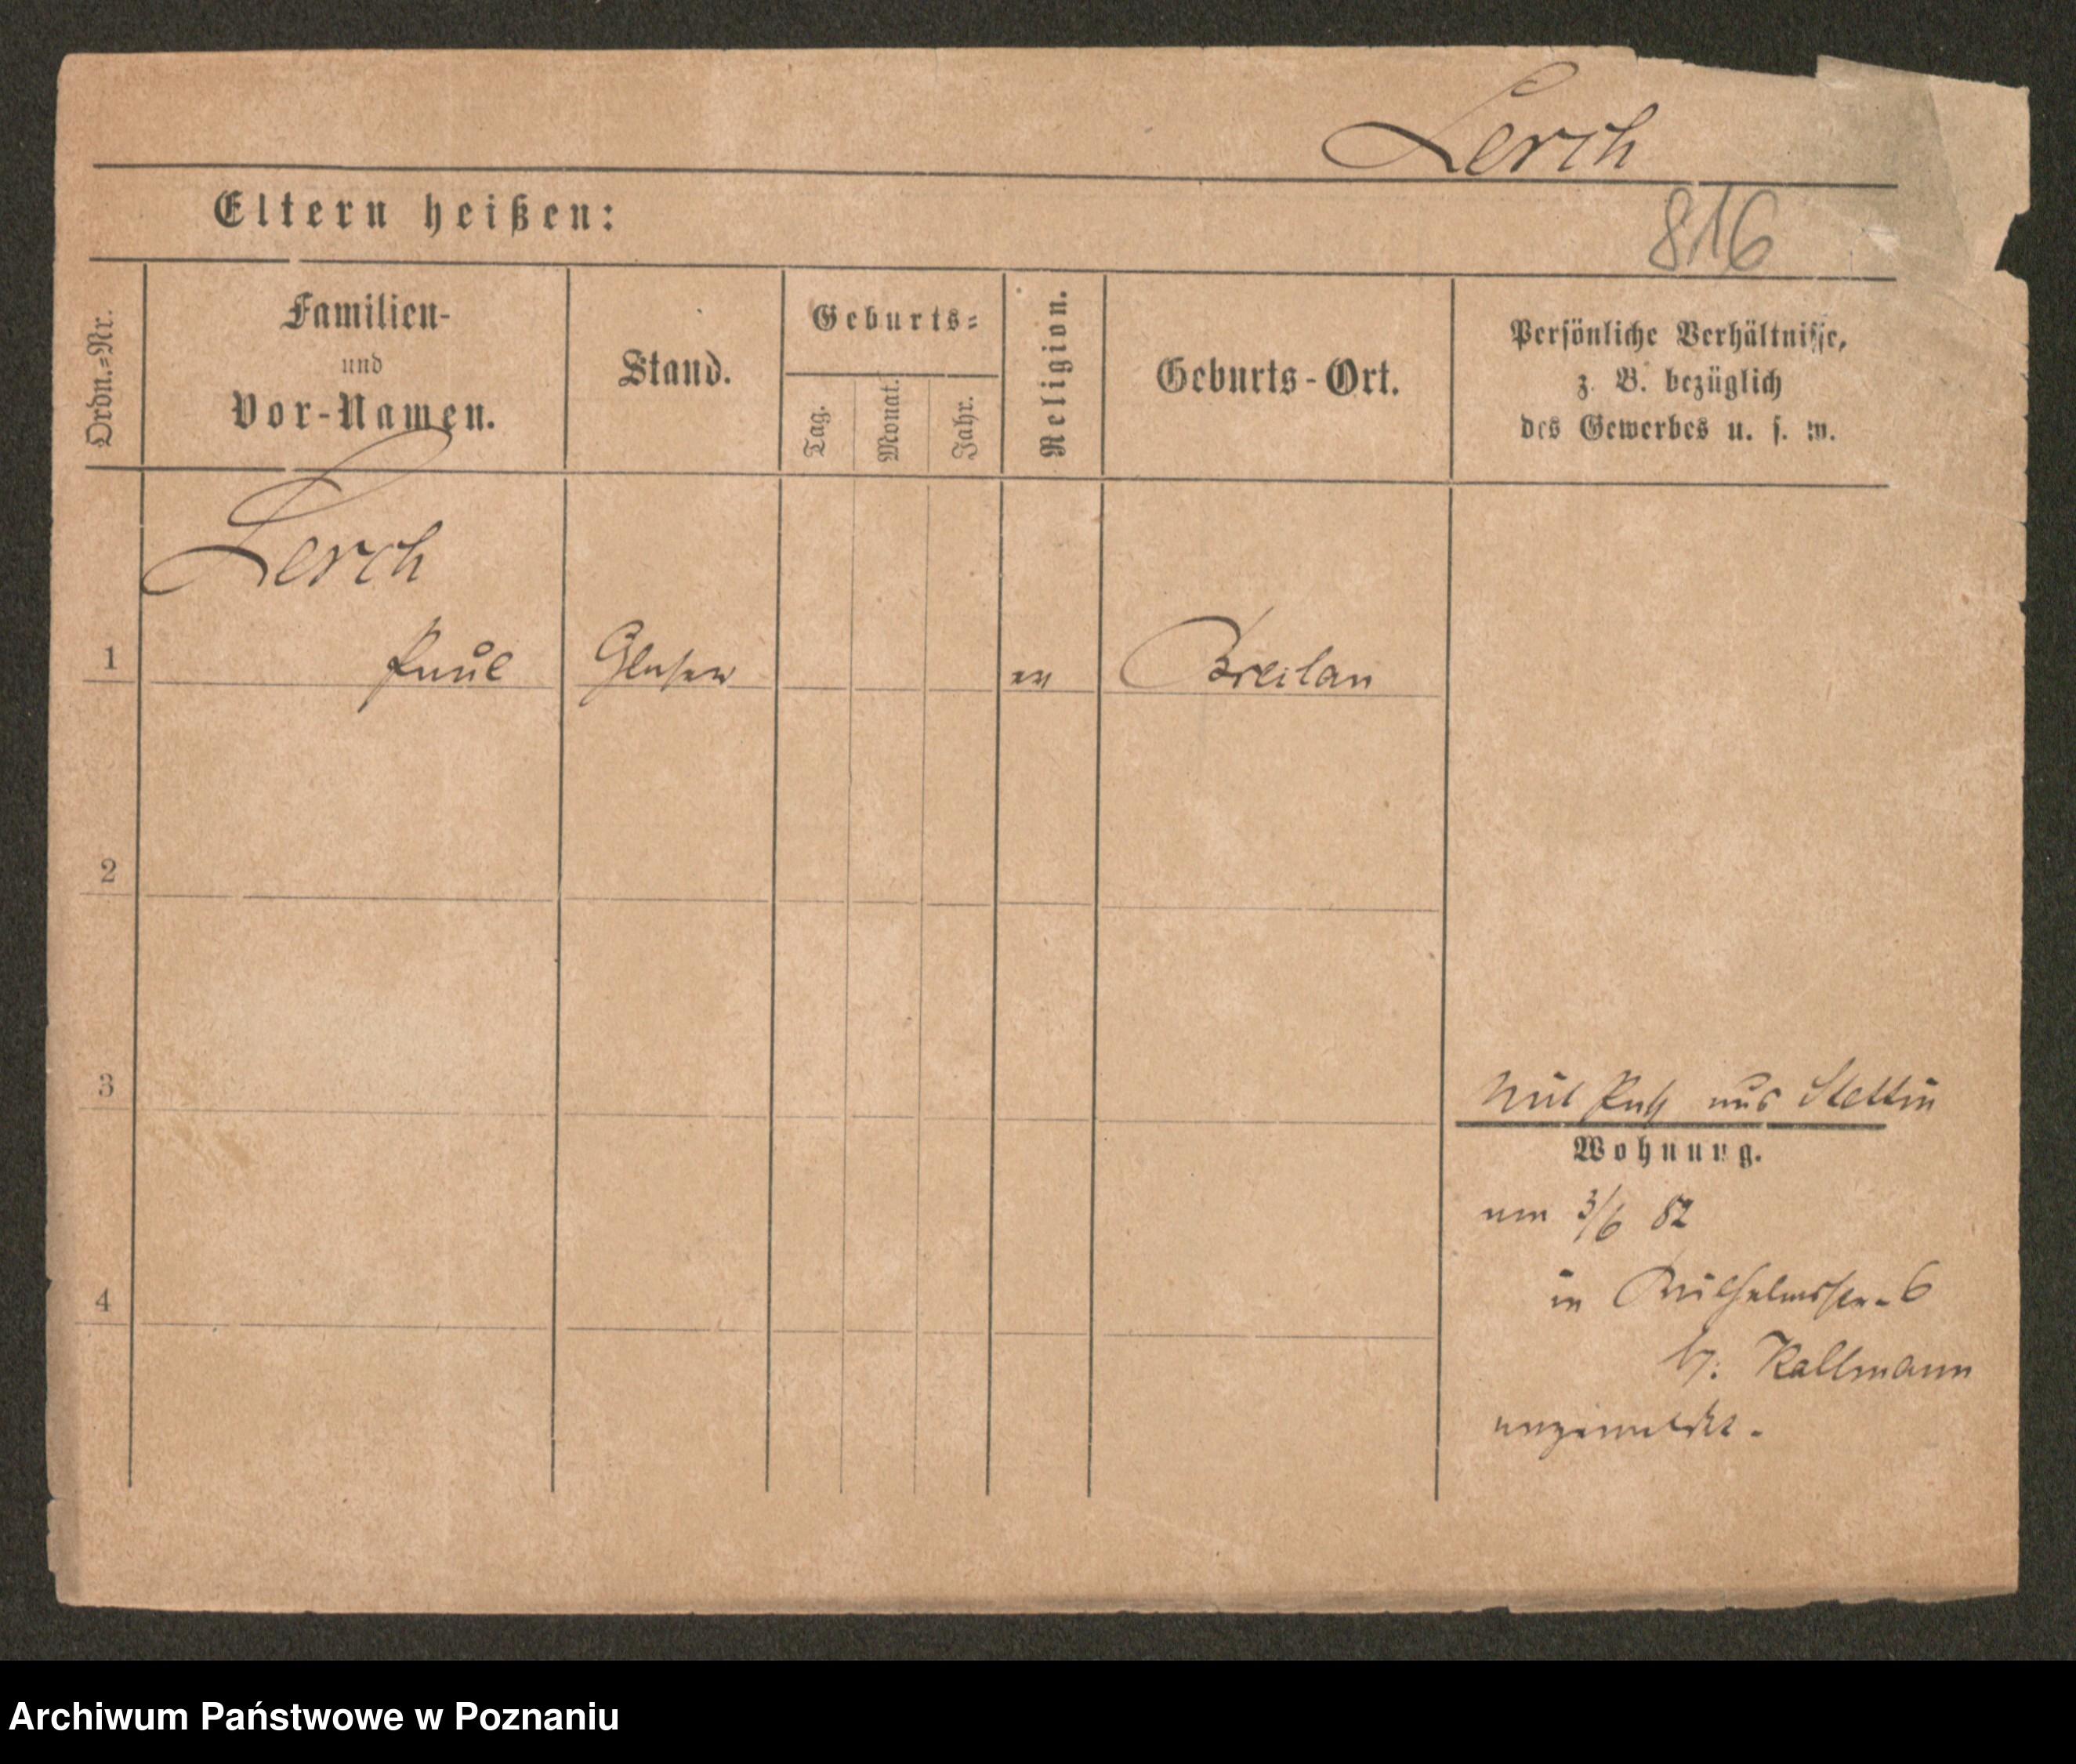 Lerch
816
Eltern heißen:
Ordn.-Nr.
Familien-
und
Vor-Namen.
Stand.
Geburts-
Tag.
Monat.
Jahr.
Religion.
Geburts-Ort.
Persönliche Verhältnisse,
z. B. bezüglich
des Gewerbes u. s. w.
Lerch
1 Paul Glaser ev
2
3
laut Paß aus Stettin
Wohnung.
am 3/6 82
4
in Wilhelmsstr. 6
b: Kallmann
angemeldet.
Archiwum Państwowe w Poznaniu